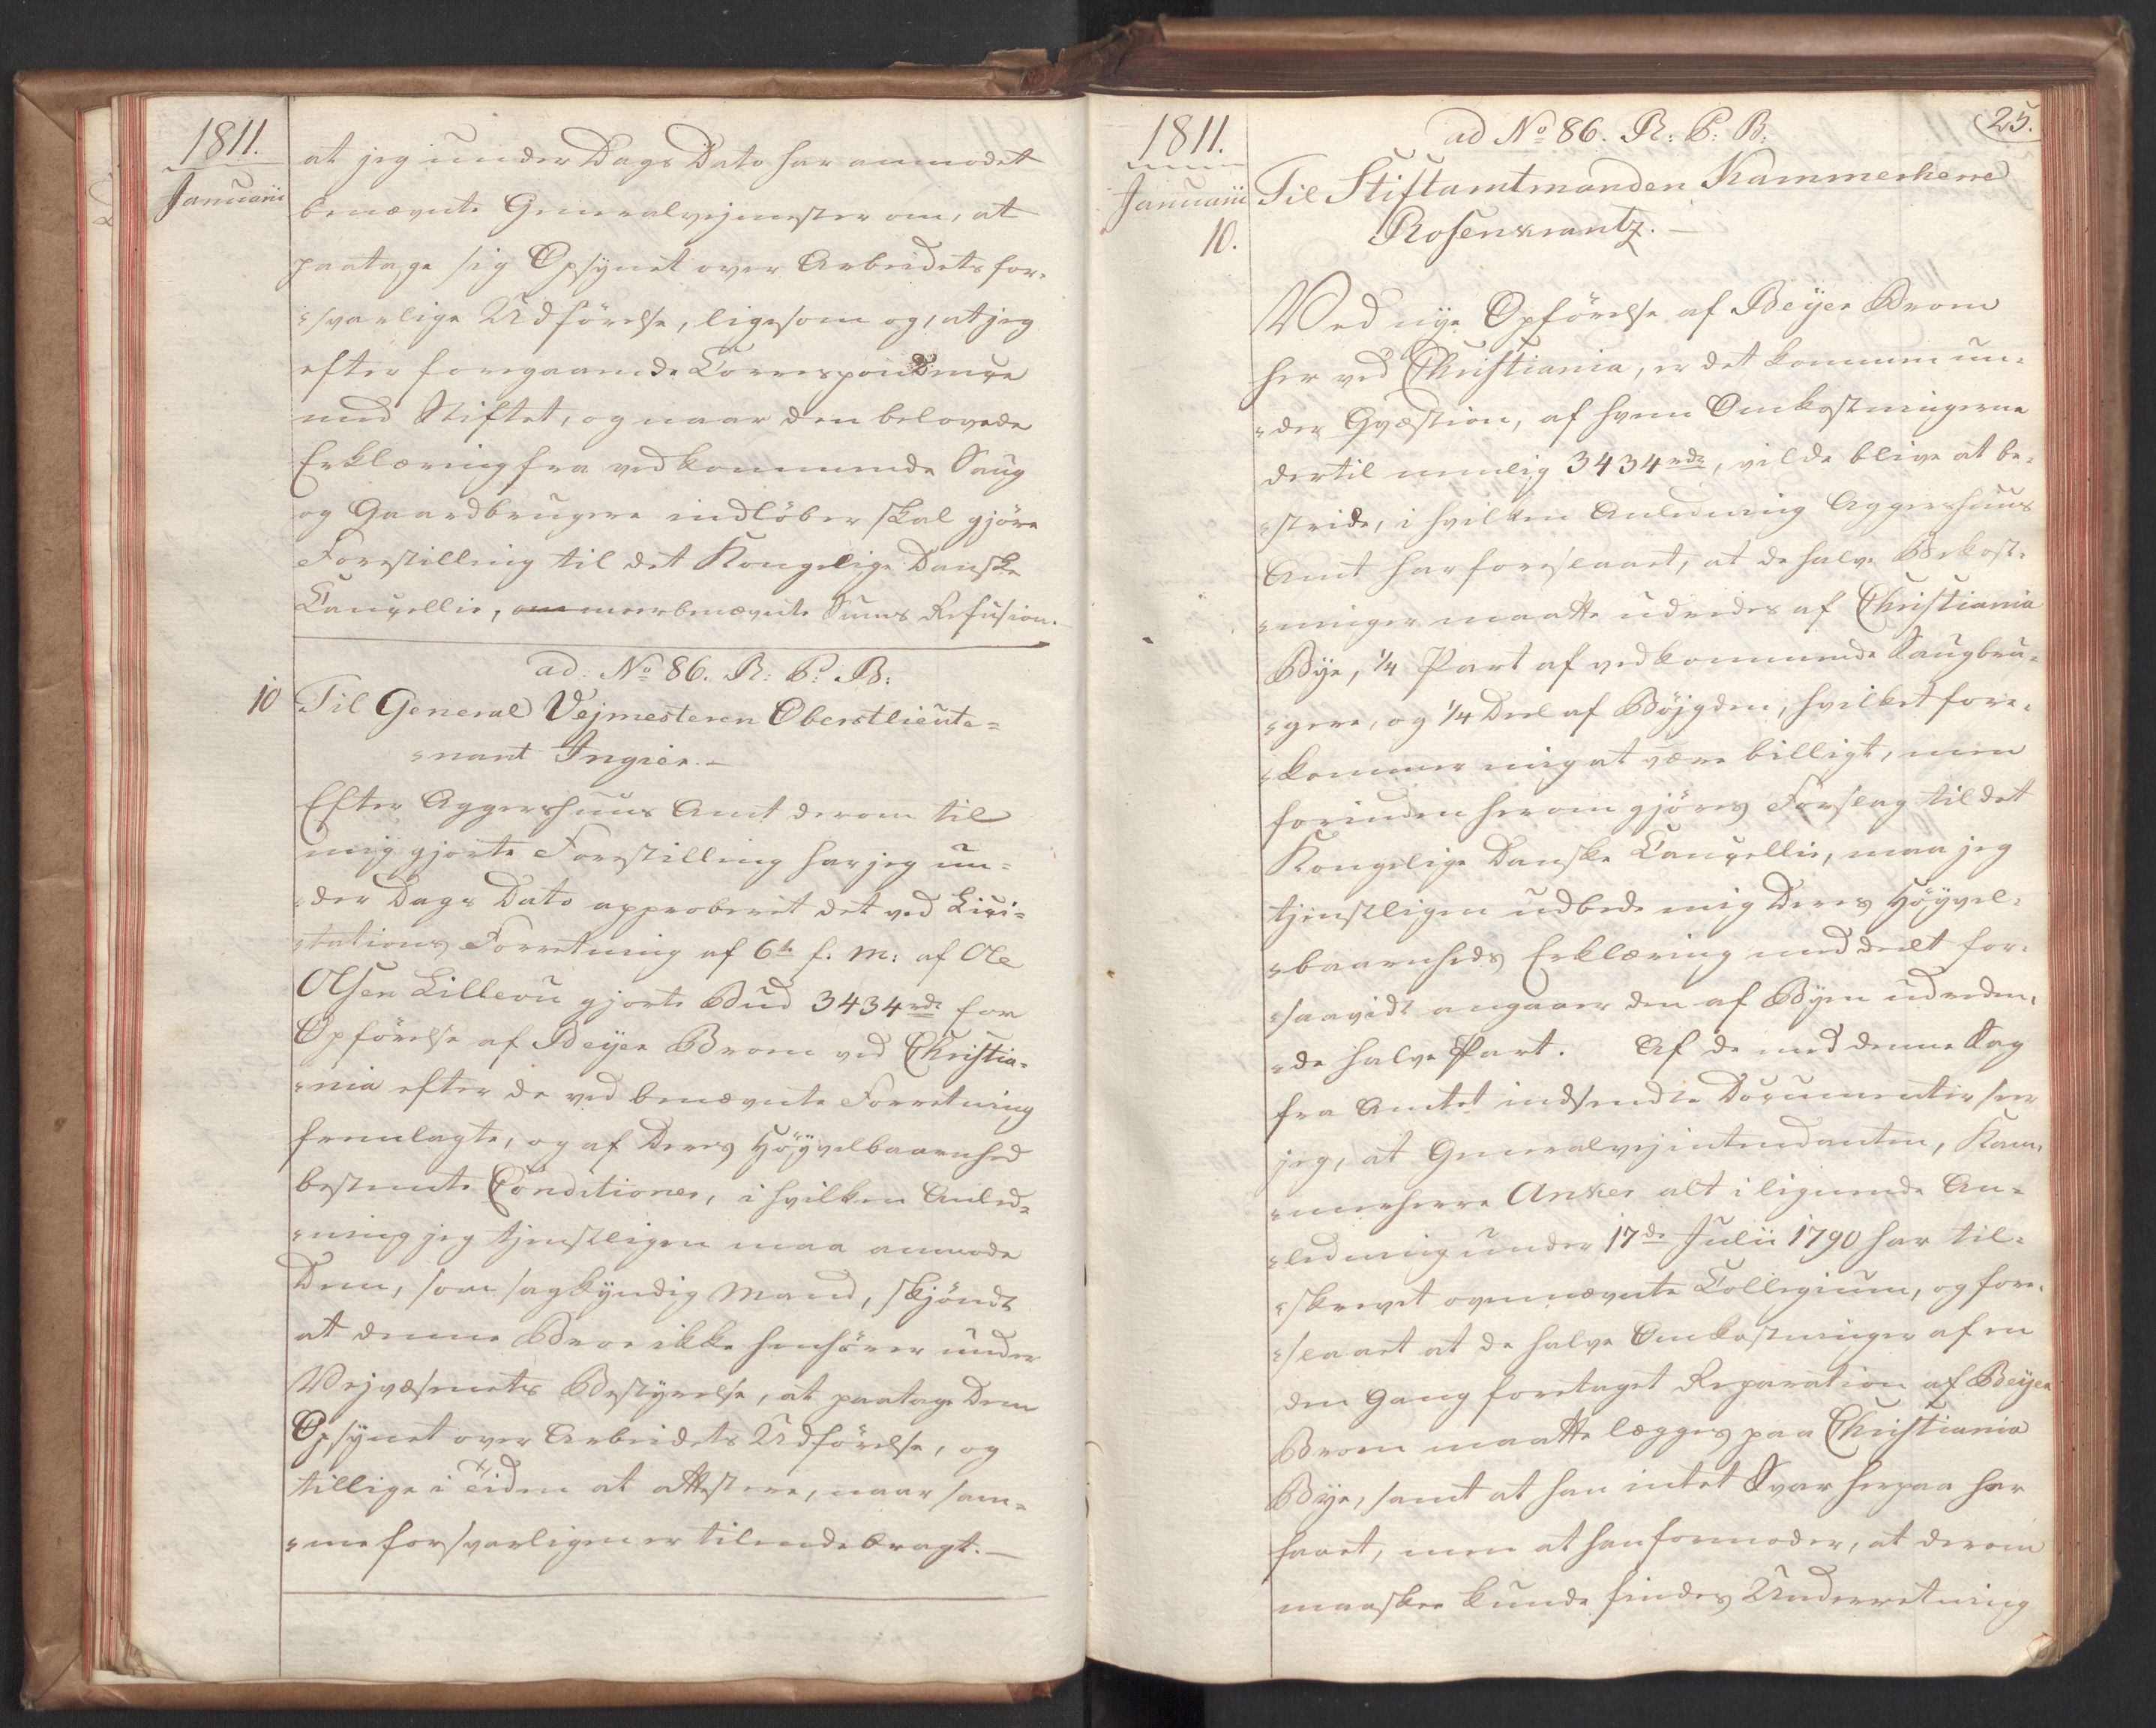 1811.
Januarii
at jeg under Dags Dato har anmodet
benævnte Generalvejmester om, at
paatage sig Opsynet over Arbeidets for-
svarlige Udförelse, ligesom og, at jeg
efter foregaaende Correspondence
med Stiftet, og naar den belovede
Erklæring fra vedkommende Saug
og Gaardbrugere indlöber skal gjöre
Forestilling til det Kongelige Danske
Cancellie, om meerbenævnte Sums Refusion.
ad: No 86. R: P: B:
10 Til General Vejmesteren Oberstlieute=
=nant Ingier.—
Efter Aggershuus Amt derom til
mig gjorte Forestilling har jeg un=
=der Dags Dato approberet det ved Lici=
=tations Forretning af 6te f. M: af Ole
Olsen Lilleou gjorte Bud 3434 rdr for
Opförelse af Beyer Broen ved Christia=
=nia efter de ved benævnte Forretning
fremlagte, og af Deres Höyvelbaarenhed
bestemte Conditioner, i hvilken Anled=
=ning jeg tjenstligen maa anmode
Dem, som sagkyndig Mand, skjöndt
at denne Broe ikke henhörer under
Vejvæsenets Bestyrelse, at paatage Dem
Opsynet over Arbeidets Udförelse, og
tillige i Tiden at attestere, naar sam=
=me forsvarligen er tilendebragt.—
1811.
Januarii
10.
25.
ad No 86. R: P: B.
Til Stiftamtmanden Kammerherre
Rosenkrantz.—
Ved nye Opförelse af Beyer Broen
her ved Christiania, er det kommen un=
=der Qvæstion, af hvem Omkostningerne
dertil nemlig 3434 rdr, vilde blive at be=
=stride, i hvilken Anledning Aggershuus
Amt har foreslaaet, at de halve Bekost=
=ninger maatte udredes af Christiania
Bye, 1/4 Part af vedkommende Saugbru=
=gere, og 1/4 Deel af Böjgden, hvilket fore=
=kommer mig at være billigt, men
forinden herom gjöres Forslag til det
Kongelige Danske Cancellie, maa jeg
tjenstligen udbede mig Deres Höyvel=
=baarenheds Erklæring meddeelt for=
=saavidt angaaer den af Byen udreden=
=de halve Part. Af de med denne Sag
fra Amtet indsendte Documenter seer
jeg, at Generalvejintendanten, Kam=
=merherre Anker alt i lignende An=
=ledning under 17de Julii 1790 har til=
=skrevet ovennævnte Collegium, og fore=
=slaaet at de halve Omkostninger af en
den Gang foretaget Reparation af Beyer
Broen maatte lægges paa Christiania
Bye, samt at han intet Svar herpaa har
havt, men at han formoder, at derom
maaskee kunde findes Underretning